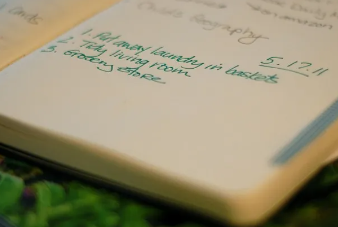 Cards
Geography
5.17.11
1. Put away laundry in baskets
2. Tidy living room
3. Grocery store